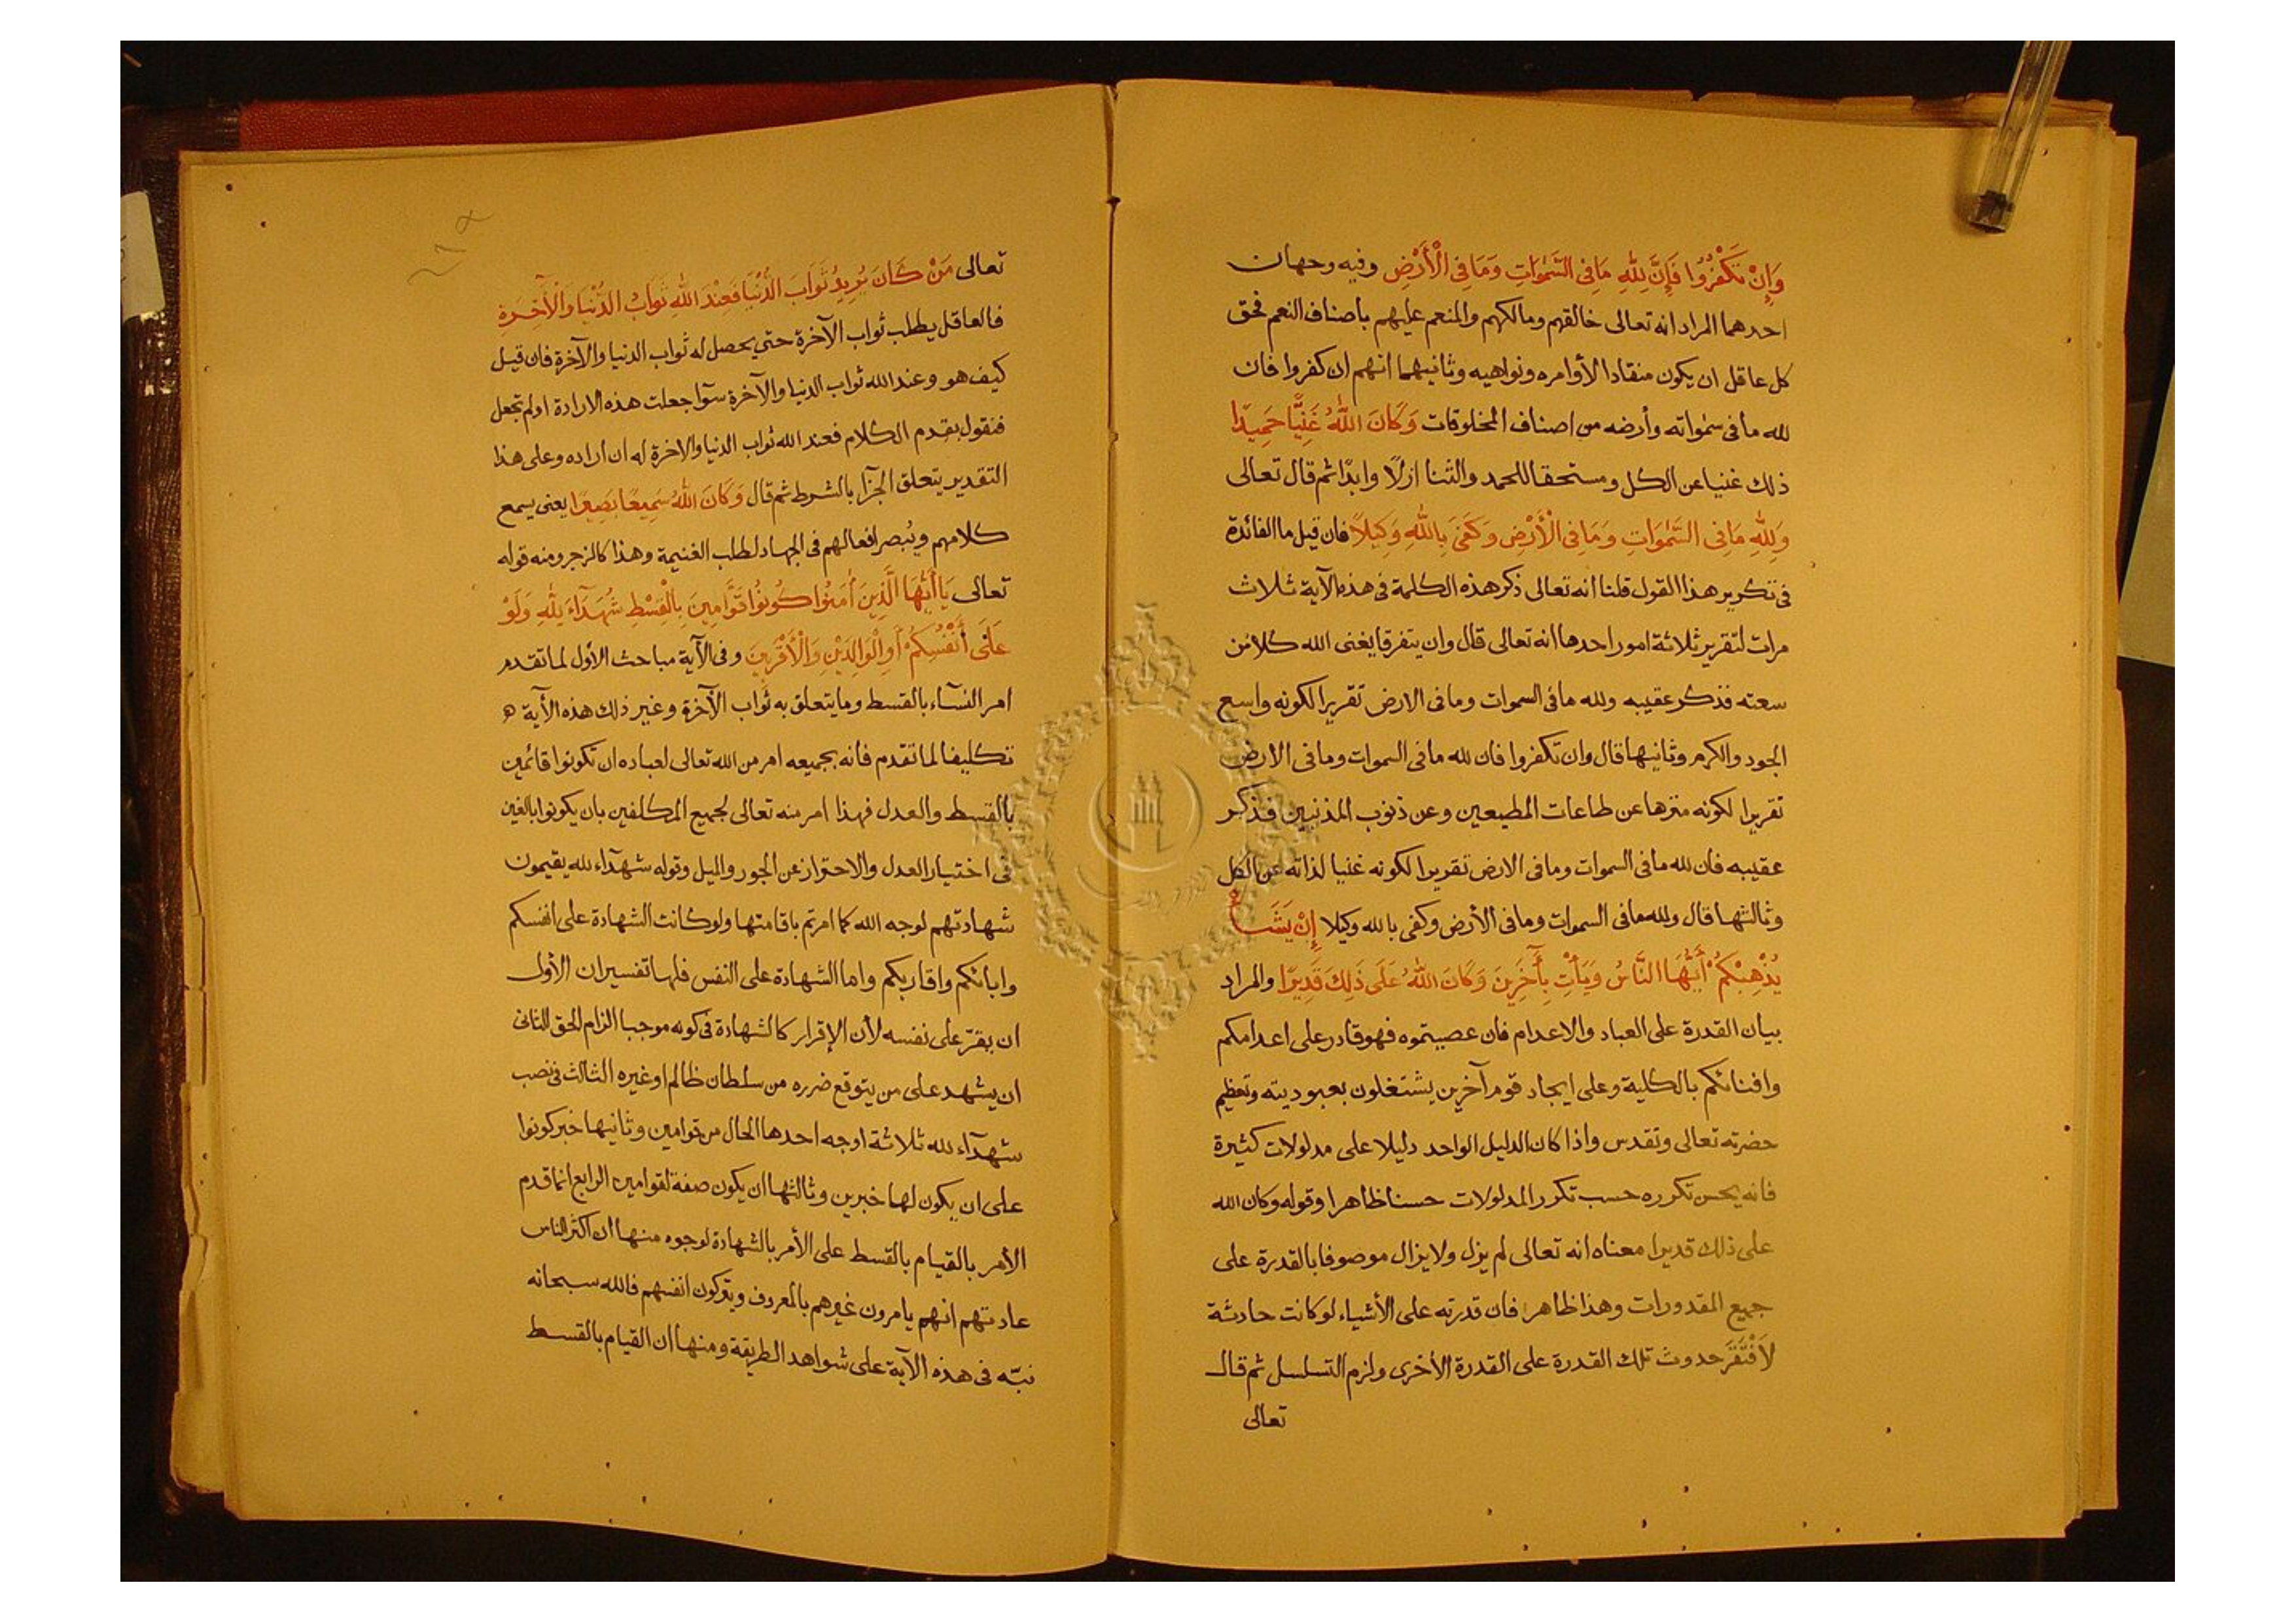 وَإِنْ تَكْفُرُوا فَإِنَّ لِلّٰهِ مَا فِي السَّمٰوَاتِ وَمَا فِي الْأَرْضِ وفيه وجهان
احدهما المراد انه تعالى خالقهم ومالكهم والمنعم عليهم بأصناف النعم فحق
كل عاقل ان يكون منقادا لأوامره ونواهيه وثانيهما انهم ان كفروا فان
لله ما فى سمٰواته وأرضه من اصناف المخلوقات وَكَانَ اللّٰهُ غَنِيًّا حَمِيدًا
ذلك غنيا عن الكل ومستحقا للحمد والثنا ازلًا وابدًا ثم قال تعالى
وَلِلّٰهِ مَا فِى السَّمٰوَاتِ وَمَا فِى الْأَرْضِ وَكَفَىٰ بِاللّٰهِ وَكِيلًا فان قيل ما الفائدة
فى تكرير هذا القول قلنا انه تعالى ذكر هذه الكلمة فى هذه الآية ثلاث
مرات لتقرير ثلاثة امور احدها انه تعالى قال وان يتفرقا يغنى الله كلا من
سعته فذكر عقيبه ولله ما فى السموات وما فى الارض تقريرا لكونه واسع
الجود والكرم وثانيها قال وان تكفروا فان لله ما فى السموات وما فى الارض
تقريرا لكونه منزها عن طاعات المطيعين وعن ذنوب المذنبين فذكر
عقيبه فان لله ما فى السموات وما فى الارض تقريرا لكونه غنيا لذاته عن الكل
وثالثها قال ولله ما فى السموات وما فى الأرض وكفى بالله وكيلا إِنْ يَشَأْ
يُذْهِبْكُمْ أَيُّهَا النَّاسُ وَيَأْتِ بِآَخَرِينَ وَكَانَ اللّٰهُ عَلَى ذَلِكَ قَدِيرًا والمراد
بيان القدرة على العباد والاعدام فان عصيتموه فهو قادر على اعدامكم
وافنائكم بالكلية وعلى ايجاد قوم آخرين يشتغلون بعبوديته وتعظيم
حضرته تعالى وتقدس واذا كان الدليل الواحد دليلا على مدلولات كثيرة
فانه يحسن تكرره حسب تكرر المدلولات حسنا ظاهرا وقوله وكان الله
على ذلك قديرا معناه انه تعالى لم يزل ولا يزال موصوفا بالقدرة على
جميع المقدورات وهذا ظاهر فان قدرته على الأشياء لو كانت حادثة
لَافْتَقَرَ حدوث تلك القدرة على القدرة الأخرى ولزم التسلسل ثم قال
تعالى
تعالى مَنْ كَانَ يُرِيدُ ثَوَابَ الدُّنْيَا فَعِنْدَ اللّٰهِ ثَوَابُ الدُّنْيَا وَالْآَخِرَةِ
فالعاقل يطلب ثواب الآخرة حتى يحصل له ثواب الدنيا والآخرة فان قيل
كيف هو وعند الله ثواب الدنيا والآخرة سوآ جعلت هذه الارادة او لم تجعل
فنقول بقدم الكلام فعند الله ثواب الدنيا والاخرة له ان اراده وعلى هذا
التقدير يتعلق الجزآ بالشرط ثم قال وَكَانَ اللّٰهُ سَمِيعًا بَصِيرًا يعنى يسمع
كلامهم ويُبصر افعالهم فى الجهاد لطلب الغنيمة وهذا كالزجر ومنه قوله
تعالى يَا أَيُّهَا الَّذِينَ أٰمَنُوا كُونُوا قَوَّامِينَ بِالْقِسْطِ شُهَدَآءَ لِلّٰهِ وَلَوْ
عَلَى أَنْفُسِكُمْ أَوِ الْوَالِدَيْنِ وَالْأَقْرَبِينَ وفى الآية مباحث الأول لما تقدم
امر النسآء بالقسط وما يتعلق به ثواب الآخرة وغير ذلك هذه الآية
تكليفا لما تقدم فانه بجميعه امر من الله تعالى لعباده ان تكونوا قائمين
بالقسط والعدل فهذا امر منه تعالى لجميع المكلفين بان يكونوا بالغين
فى اختيار العدل والاحتراز عن الجور والميل وقوله شهدآء لله يقيمون
شهادتهم لوجه الله كما امرتم باقامتها ولو كانت الشهادة على انفسكم
وابائكم واقاربكم واما الشهادة على النفس فلها تفسيران الأول
ان يقرّ على نفسه لأن الإقرار كالشهادة فى كونه موجبا الزام الحق الثانى
ان يشهد على من يتوقع ضرره من سلطان ظالم او غيره الثالث فى نصب
شهدآء لله ثلاثة اوجه احدها الحال من قوامين وثانيها خبر كونوا
على ان يكون لها خبرين وثالثها ان يكون صفة لقوامين الرابع انما قدم
الأمر بالقيام بالقسط على الأمر بالشهادة لوجوه منها ان اكثر الناس
عادتهم انهم يامرون غيرهم بالمعروف ويتركون انفسهم فالله سبحانه
نبّه فى هذه الآية على شواهد الطريقة ومنها ان القيام بالقسط